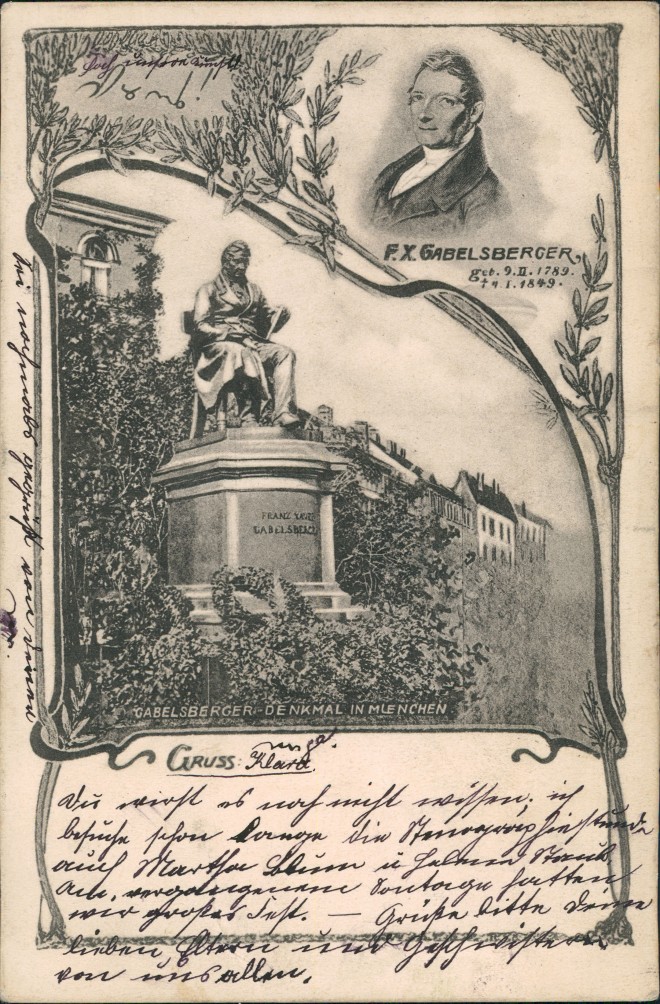 Hoch unsere Kunst!
F. X. GABELSBERGER,
geb. 9. II. 1789.
† 4. I. 1849.
FRANZ XAVER
GABELSBERGER
GABELSBERGER-DENKMAL IN MUENCHEN.
GRUSS: Klara.
Du wirst es noch nicht wissen, ich
besuche schon lange die Stenographiestunde
auch Martha Blum u Helene Staub
Am vergangenem Sontage hatten
wir großes Fest. — Grüße bitte Deine
lieben Eltern und Geschwistern
von uns allen.